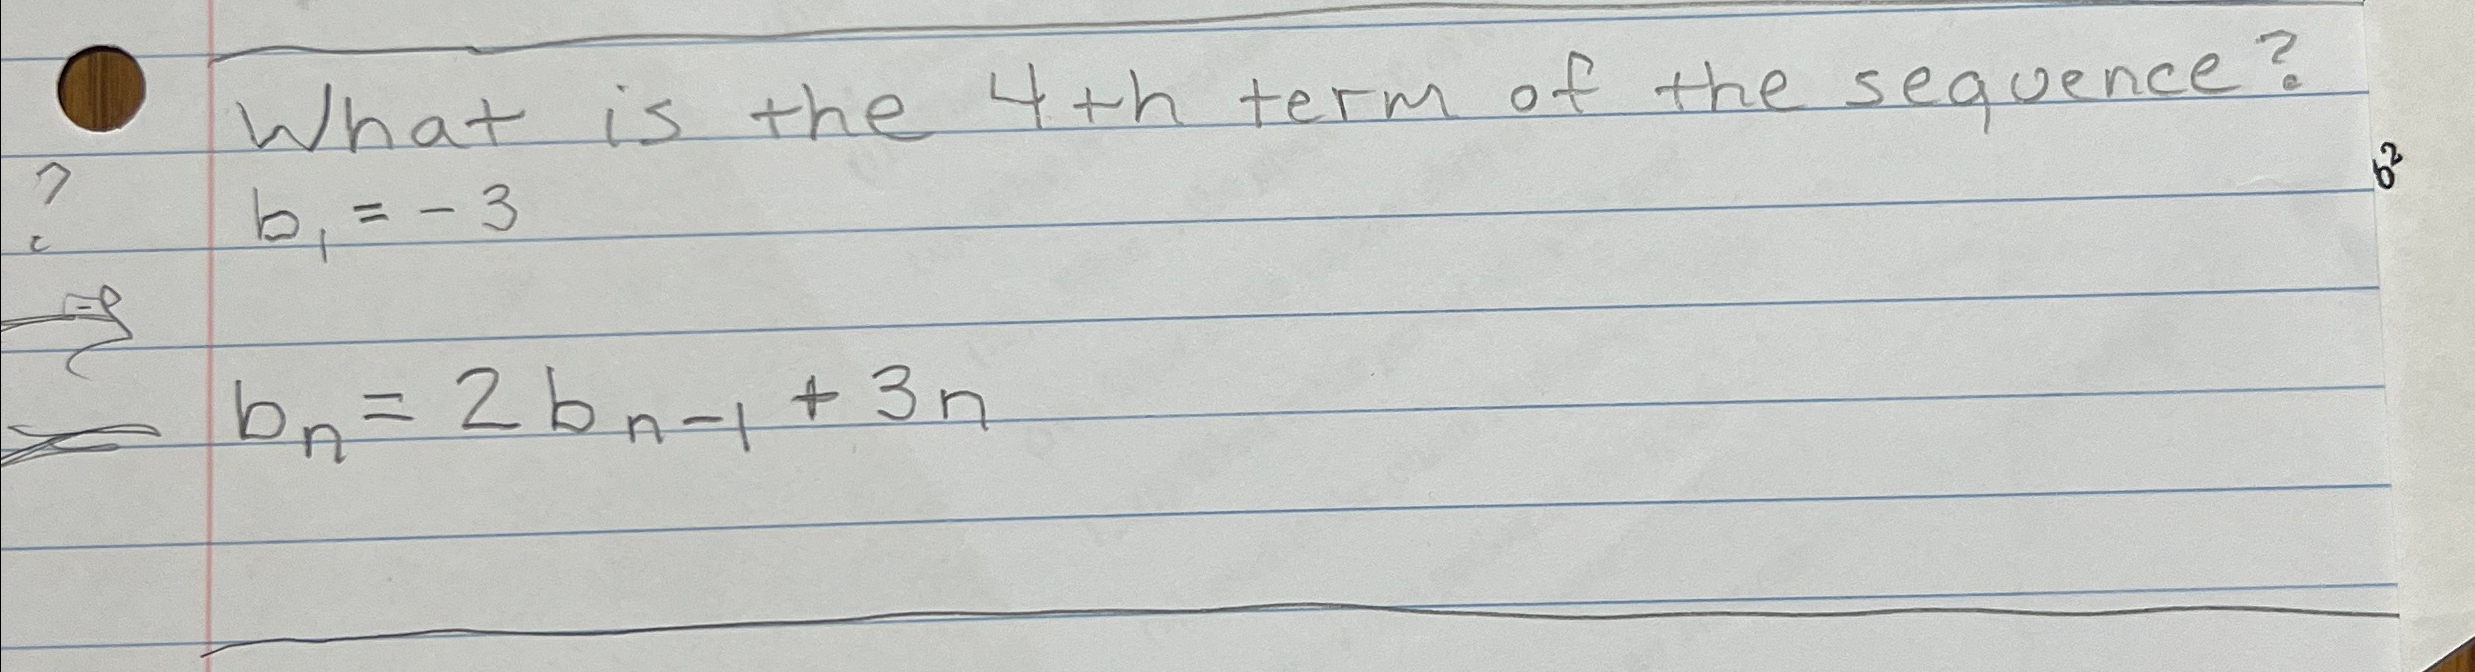 What is the 4th term of the sequence?
?
b₁ = -3
b²
bₙ = 2bₙ₋₁ + 3n